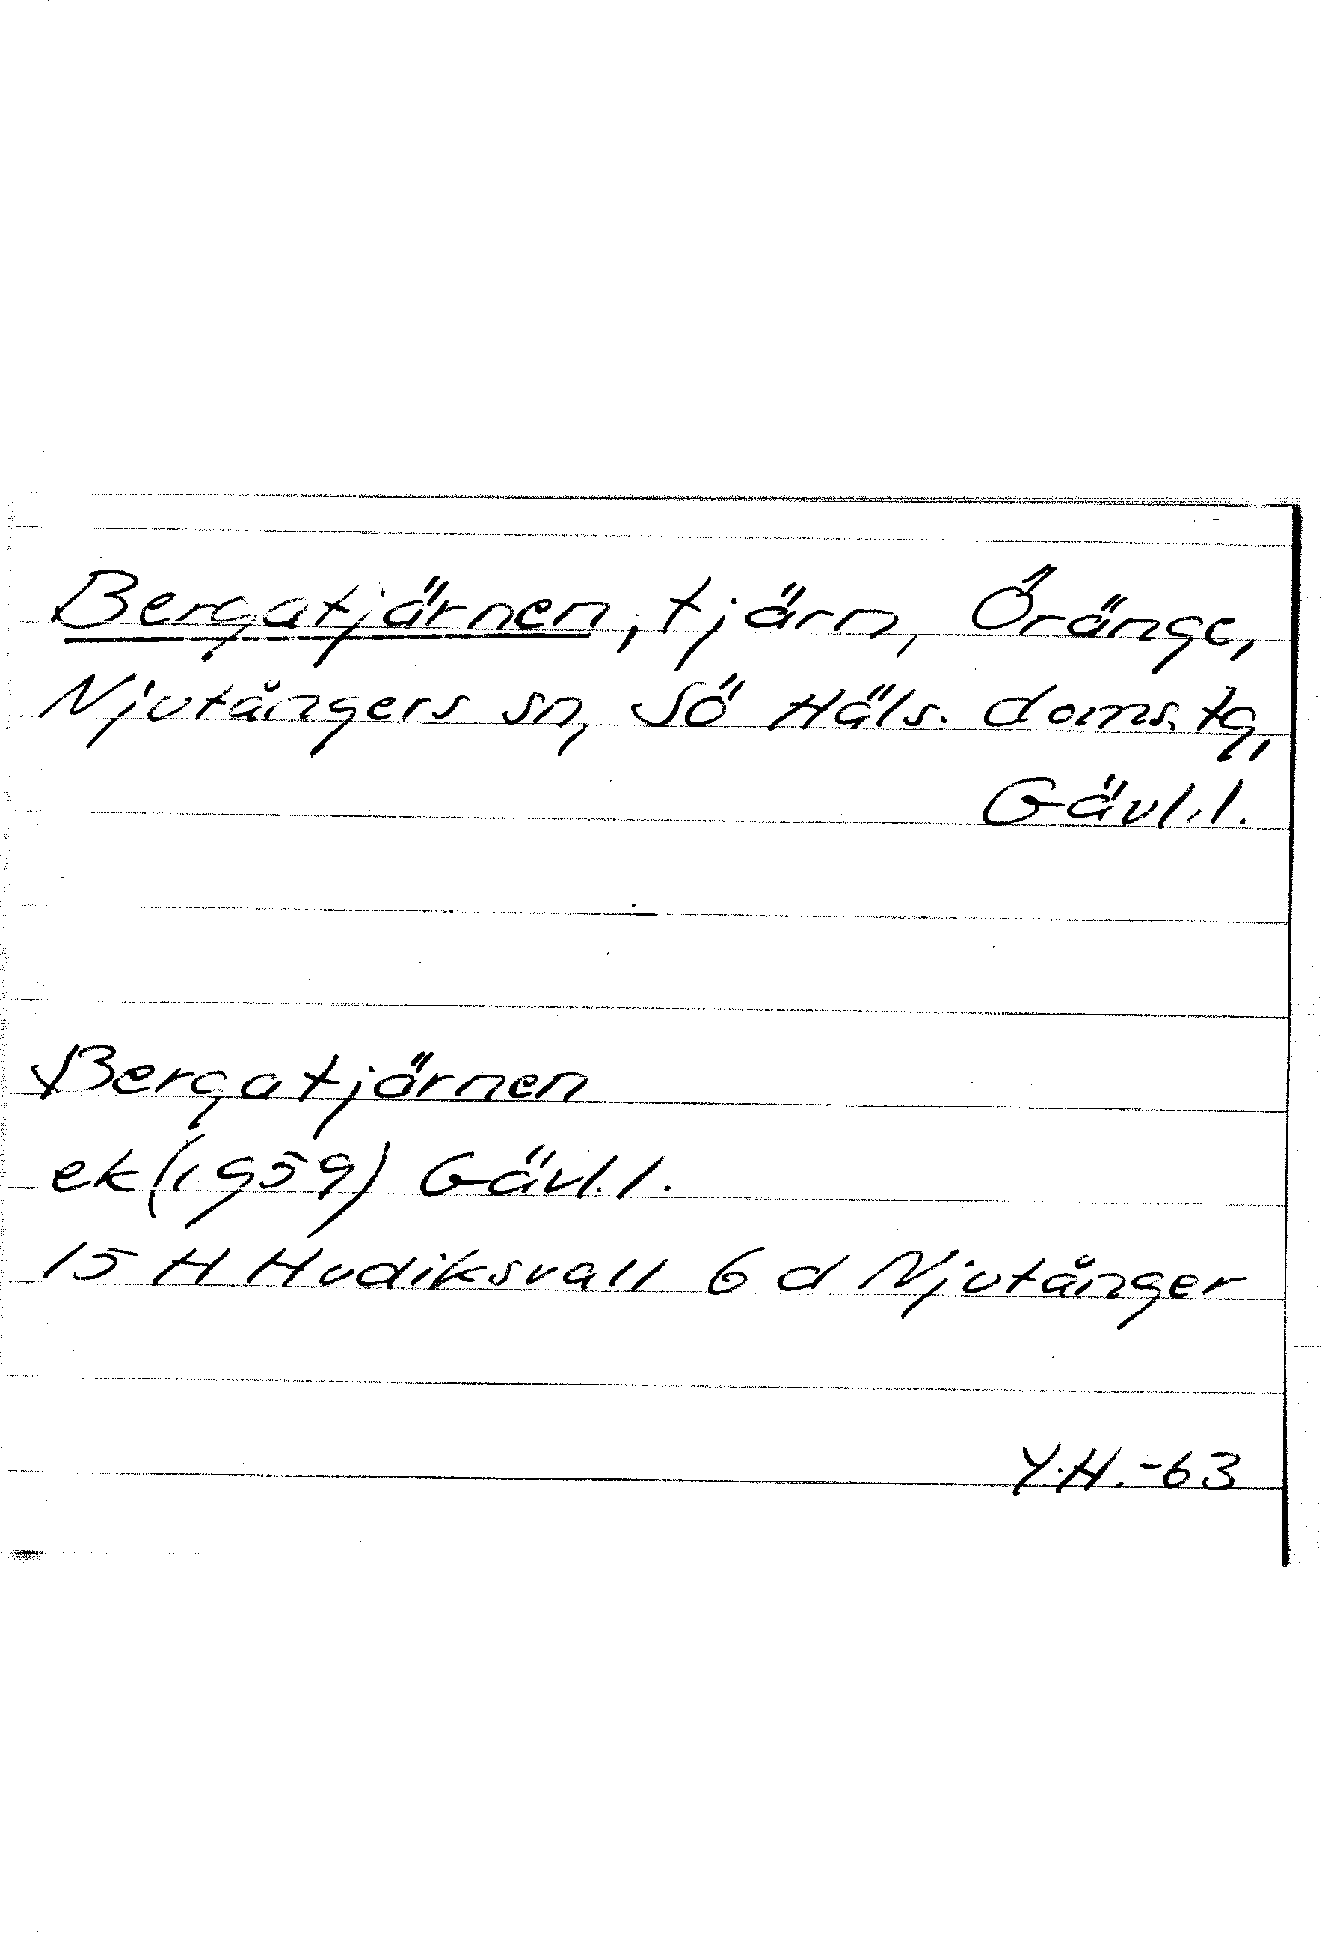 Bergatjärnen, tjärn, Öränge,
Njutångers sn, Sö Häls. doms. tg,
Gävl.l.
Bergatjärnen
ek (1959) Gävl.l.
15 H Hudiksvall 6 d Njutånger
Y.H.-63